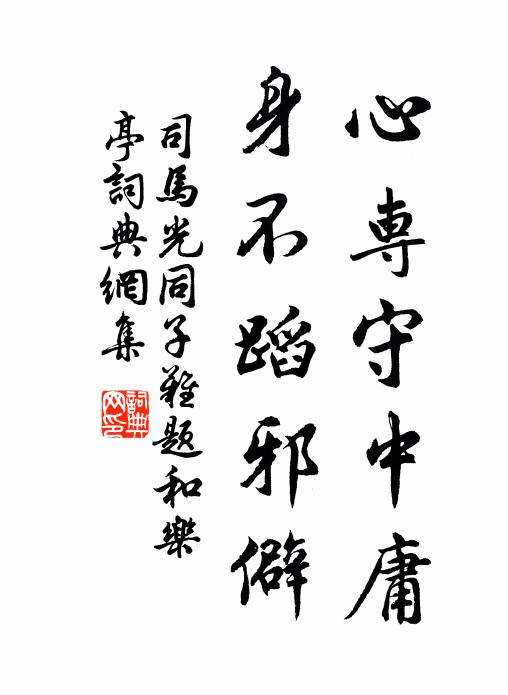 心専守中庸
身不蹈邪僻
司馬光同子難题和樂
亭詞典網集
詞典网印